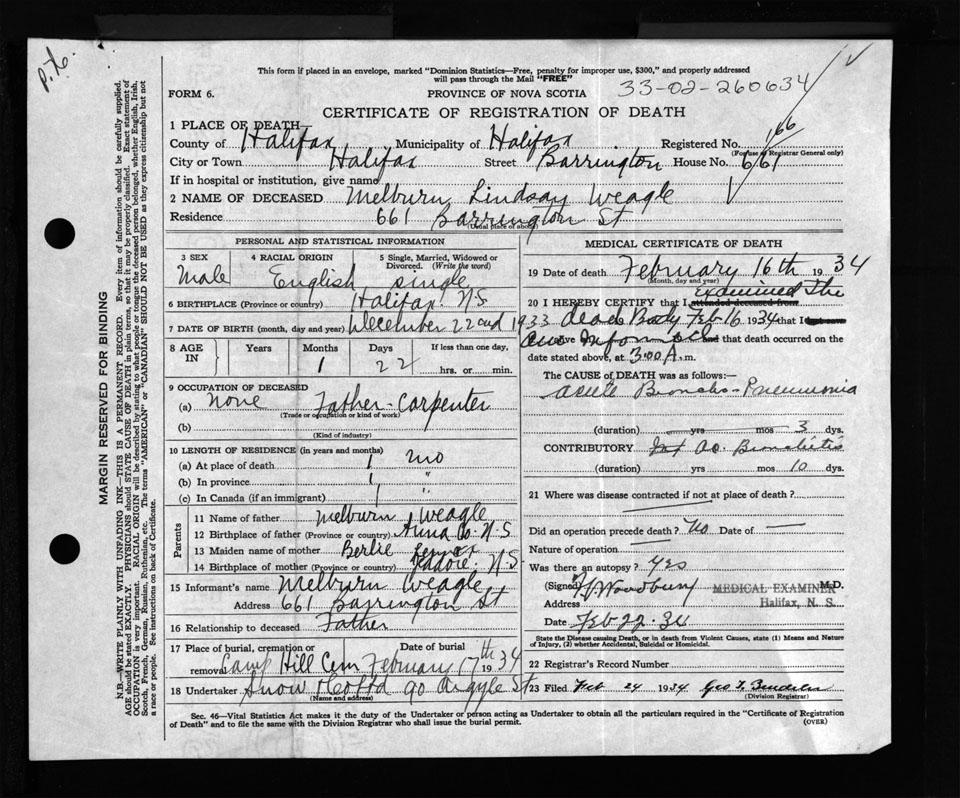 p.x.
This form if placed in an envelope, marked "Dominion Statistics—Free, penalty for improper use, $300," and properly addressed
will pass through the Mail "FREE"
33-02-260634
FORM 6. PROVINCE OF NOVA SCOTIA
CERTIFICATE OF REGISTRATION OF DEATH
1 PLACE OF DEATH—
County of Halifax Municipality of Halifax Registered No. 166
(For use of Registrar General only)
City or Town Halifax Street Barrington House No. 661
If in hospital or institution, give name
2 NAME OF DECEASED Melburn Lindsay Weagle
Residence 661 Barrington St
(Usual place of abode)
PERSONAL AND STATISTICAL INFORMATION
3 SEX 4 RACIAL ORIGIN 5 Single, Married, Widowed or
Divorced. (Write the word)
Male English single
6 BIRTHPLACE (Province or country) Halifax N.S.
7 DATE OF BIRTH (month, day and year) December 22nd 1933
8 AGE IN Years Months Days If less than one day,
1 22 hrs. or min.
9 OCCUPATION OF DECEASED
(a) None Father-Carpenter
(Trade or occupation or kind of work)
(b)
(Kind of industry)
10 LENGTH OF RESIDENCE (in years and months)
(a) At place of death 1 mo
(b) In province 1 "
(c) In Canada (if an immigrant) 1 "
Parents
11 Name of father Melburn Weagle
12 Birthplace of father (Province or country) Anna Co. N-S
13 Maiden name of mother Berlie
14 Birthplace of mother (Province or country) N-S
15 Informant's name Melburn Weagle
Address 661 Barrington St
16 Relationship to deceased Father
17 Place of burial, cremation or removal Date of burial
Camp Hill Cem February 17th 1934
18 Undertaker Snow & Co Ltd 90 Argyle St
(Name and address)
MEDICAL CERTIFICATE OF DEATH
19 Date of death February 16th 1934
(Month, day and year)
20 I HEREBY CERTIFY that I attended deceased from examined the
dead Body Feb 16 1934 that I last saw
alive am informed and that death occurred on
date stated above, at 3.00 A.m.
The CAUSE of DEATH was as follows:—
acute Broncho-Pneumonia
(duration) yrs mos 3 dys.
CONTRIBUTORY Ac. Bronchitis
(duration) yrs mos 10 dys.
21 Where was disease contracted if not at place of death?
Did an operation precede death? No Date of —
Nature of operation —
Was there an autopsy? Yes
(Signed) Woodbury MEDICAL EXAMINER M.D.
Address Halifax, N. S.
Date Feb-22-34
State the Disease causing Death, or in death from Violent Causes, state (1) Means and Nature
of Injury, (2) whether Accidental, Suicidal or Homicidal.
22 Registrar's Record Number
23 Filed Feb 24 1934 Geo
(Division Registrar)
Sec. 46—Vital Statistics Act makes it the duty of the Undertaker or person acting as Undertaker to obtain all the particulars required in the "Certificate of Registration
of Death" and to file the same with the Division Registrar who shall issue the burial permit. (OVER)
MARGIN RESERVED FOR BINDING
N.B.—WRITE PLAINLY WITH UNFADING INK—THIS IS A PERMANENT RECORD. Every item of information should be carefully supplied.
AGE should be stated EXACTLY. PHYSICIANS should STATE CAUSE OF DEATH in plain terms, so that it may be properly classified. Exact statement of
OCCUPATION is very important. RACIAL ORIGIN will be described by stating to what people or tongue the deceased person belonged, whether English, Irish,
Scotch, French, German, Russian, Ruthenian, etc. The terms "AMERICAN" or "CANADIAN" SHOULD NOT BE USED as they express citizenship but not
a race or people. See instructions on back of Certificate.